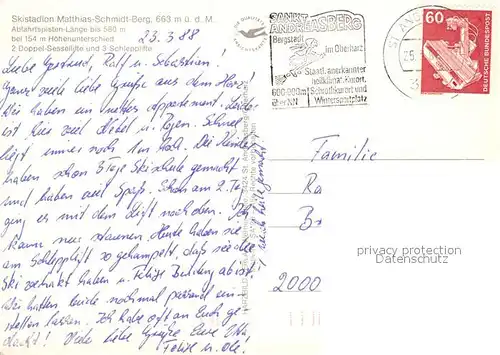 Skistadion Matthias-Schmidt-Berg, 663 m ü. d. M.
Abfahrtspisten-Länge bis 580 m
bei 154 m Höhenunterschied
2 Doppel-Sessellifte und 3 Schlepplifte
23.3.88
Liebe Gertrud, Ralf u. Sebastian!
Ganz viele liebe Grüße aus dem Harz!
Wir haben ein nettes Appartement. Leider
ist hier viel Nebel u. Regen. Schnee
liegt immer noch 1 m hoch. Die Kinder
haben schon 3 Tage Skischule gemacht
und haben viel Spaß. Schon am 2. Tag
ging es mit dem Lift nach oben. Ich
kann nur staunen. Heute haben sie
am Schlepplift so gehampelt, daß sie die
Ski verdreht haben u. Felix' Bindung ab ist.
Wir hätten beide nochmal passend
lassen. Ich habe oft an Euch ge-
dacht! Viele liebe Grüße Eure
Felix u. Ole!
SANKT
ANDREASBERG
Bergstadt
im Oberharz
Staatl. anerkannter
heilklimat. Kurort,
600-900m Schrothkurort und
über NN Wintersportplatz
ST ANDR
60
DEUTSCHE BUNDESPOST
Familie
Ra
B
2000
privacy protection
Datenschutz